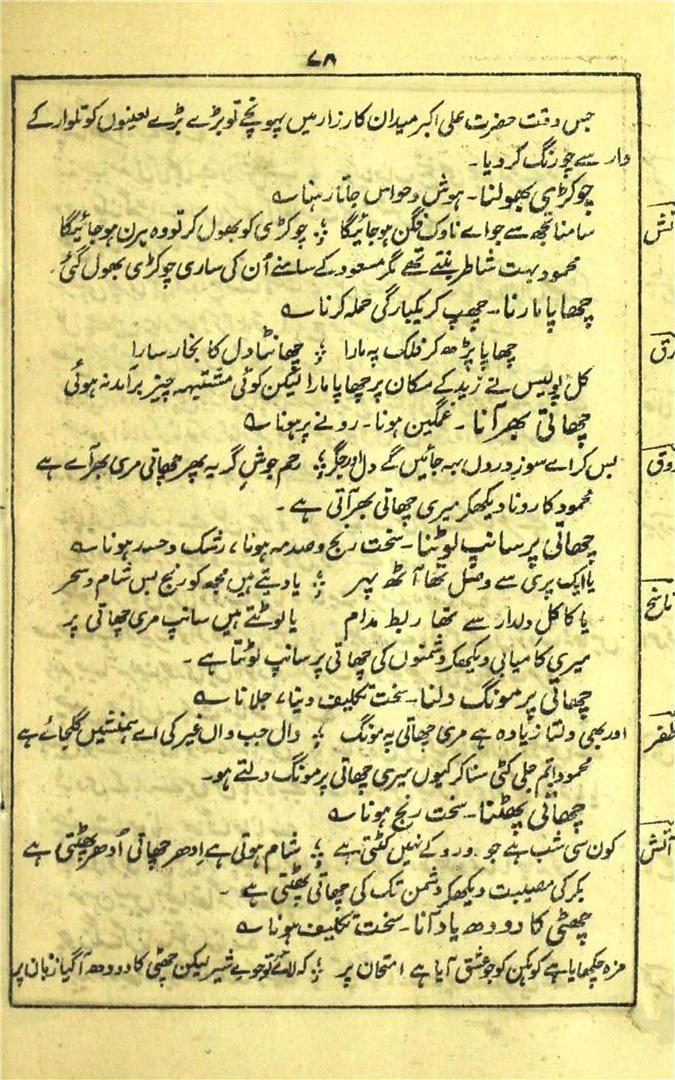 ۷۸
جس وقت حضرت علی اکبر میدان کارزار میں پہونچے تو بڑے بڑے لعینوں کو تلوار کے
وار سے چورنگ کر دیا۔
چوکڑی بھولنا۔ ہوش وحواس جاتا رہنا ؎
آتش
سامنا تجھ سے جو اے ناوک فگن ہو جائیگا ؛ چوکڑی کو بھول کر تو وہ ہرن ہو جائیگا
محمود بہت شاطر بنتے تھے مگر مسعود کے سامنے اُن کی ساری چوکڑی بھول گئی۔
چھاپا مارنا۔ چھپ کر یکبارگی حملہ کرنا ؎
برق
چھاپا پڑھ کر فلک پہ مارا ؛ چھانٹا دل کا بخار سارا
کل پولیس نے زید کے مکان پر چھاپا مارا لیکن کوئی مشتبہہ چیز برآمد نہ ہوئی
چھاتی بھر آنا ۔ غمگین ہونا۔ رونے پر ہونا ؎
ذوق
بس کر اے سوز دروں بہہ جائیں گے دل اور جگر ؛ رحم جوش گریہ پھر چھاتی مری بھر آئے ہے
محمود کا رونا دیکھکر میری چھاتی بھر آتی ہے ۔
چھاتی پر سانپ لوٹنا۔ سخت رنج وصدمہ ہونا، رشک وحسد ہونا ؎
ناسخ
یا ایک پری سے وصل تھا آٹھ پہر ؛ یا دیتے ہیں مجھ کو رنج بس شام وسحر
یا کاکل دلدار سے تھا ربط مدام یا لوٹتے ہیں سانپ مری چھاتی پر
میری کامیابی دیکھکر دشمنوں کی چھاتی پر سانپ لوٹتا ہے ۔
چھاتی پر مونگ دلنا۔ سخت تکلیف دینا، جلانا ؎
ظفر
اور بھی دلتا زیادہ ہے مری چھاتی پہ مونگ ؛ دال جب واں غیر کی اے ہمنشیں گلجائے ہے
محمود تم جلی کٹی سنا کر کیوں میری چھاتی پر مونگ دلتے ہو۔
چھاتی پھٹنا۔ سخت رنج ہونا ؎
آتش
کون سی شب ہے جو رو رو کے نہیں کٹتی ہے ؛ شام ہوتی ہے اِدھر چھاتی اُدھر پھٹتی ہے
بکر کی مصیبت دیکھکر دشمن تک کی چھاتی پھٹتی ہے ۔
چھٹی کا دودھ یاد آنا۔ سخت تکلیف ہونا ؎
مزہ چکھایا ہے کوہکن کو جو عشق آیا ہے امتحان پر ؛ کہ لائے تو جوئے شیر لیکن چھٹی کا دودھ آگیا زبان پر